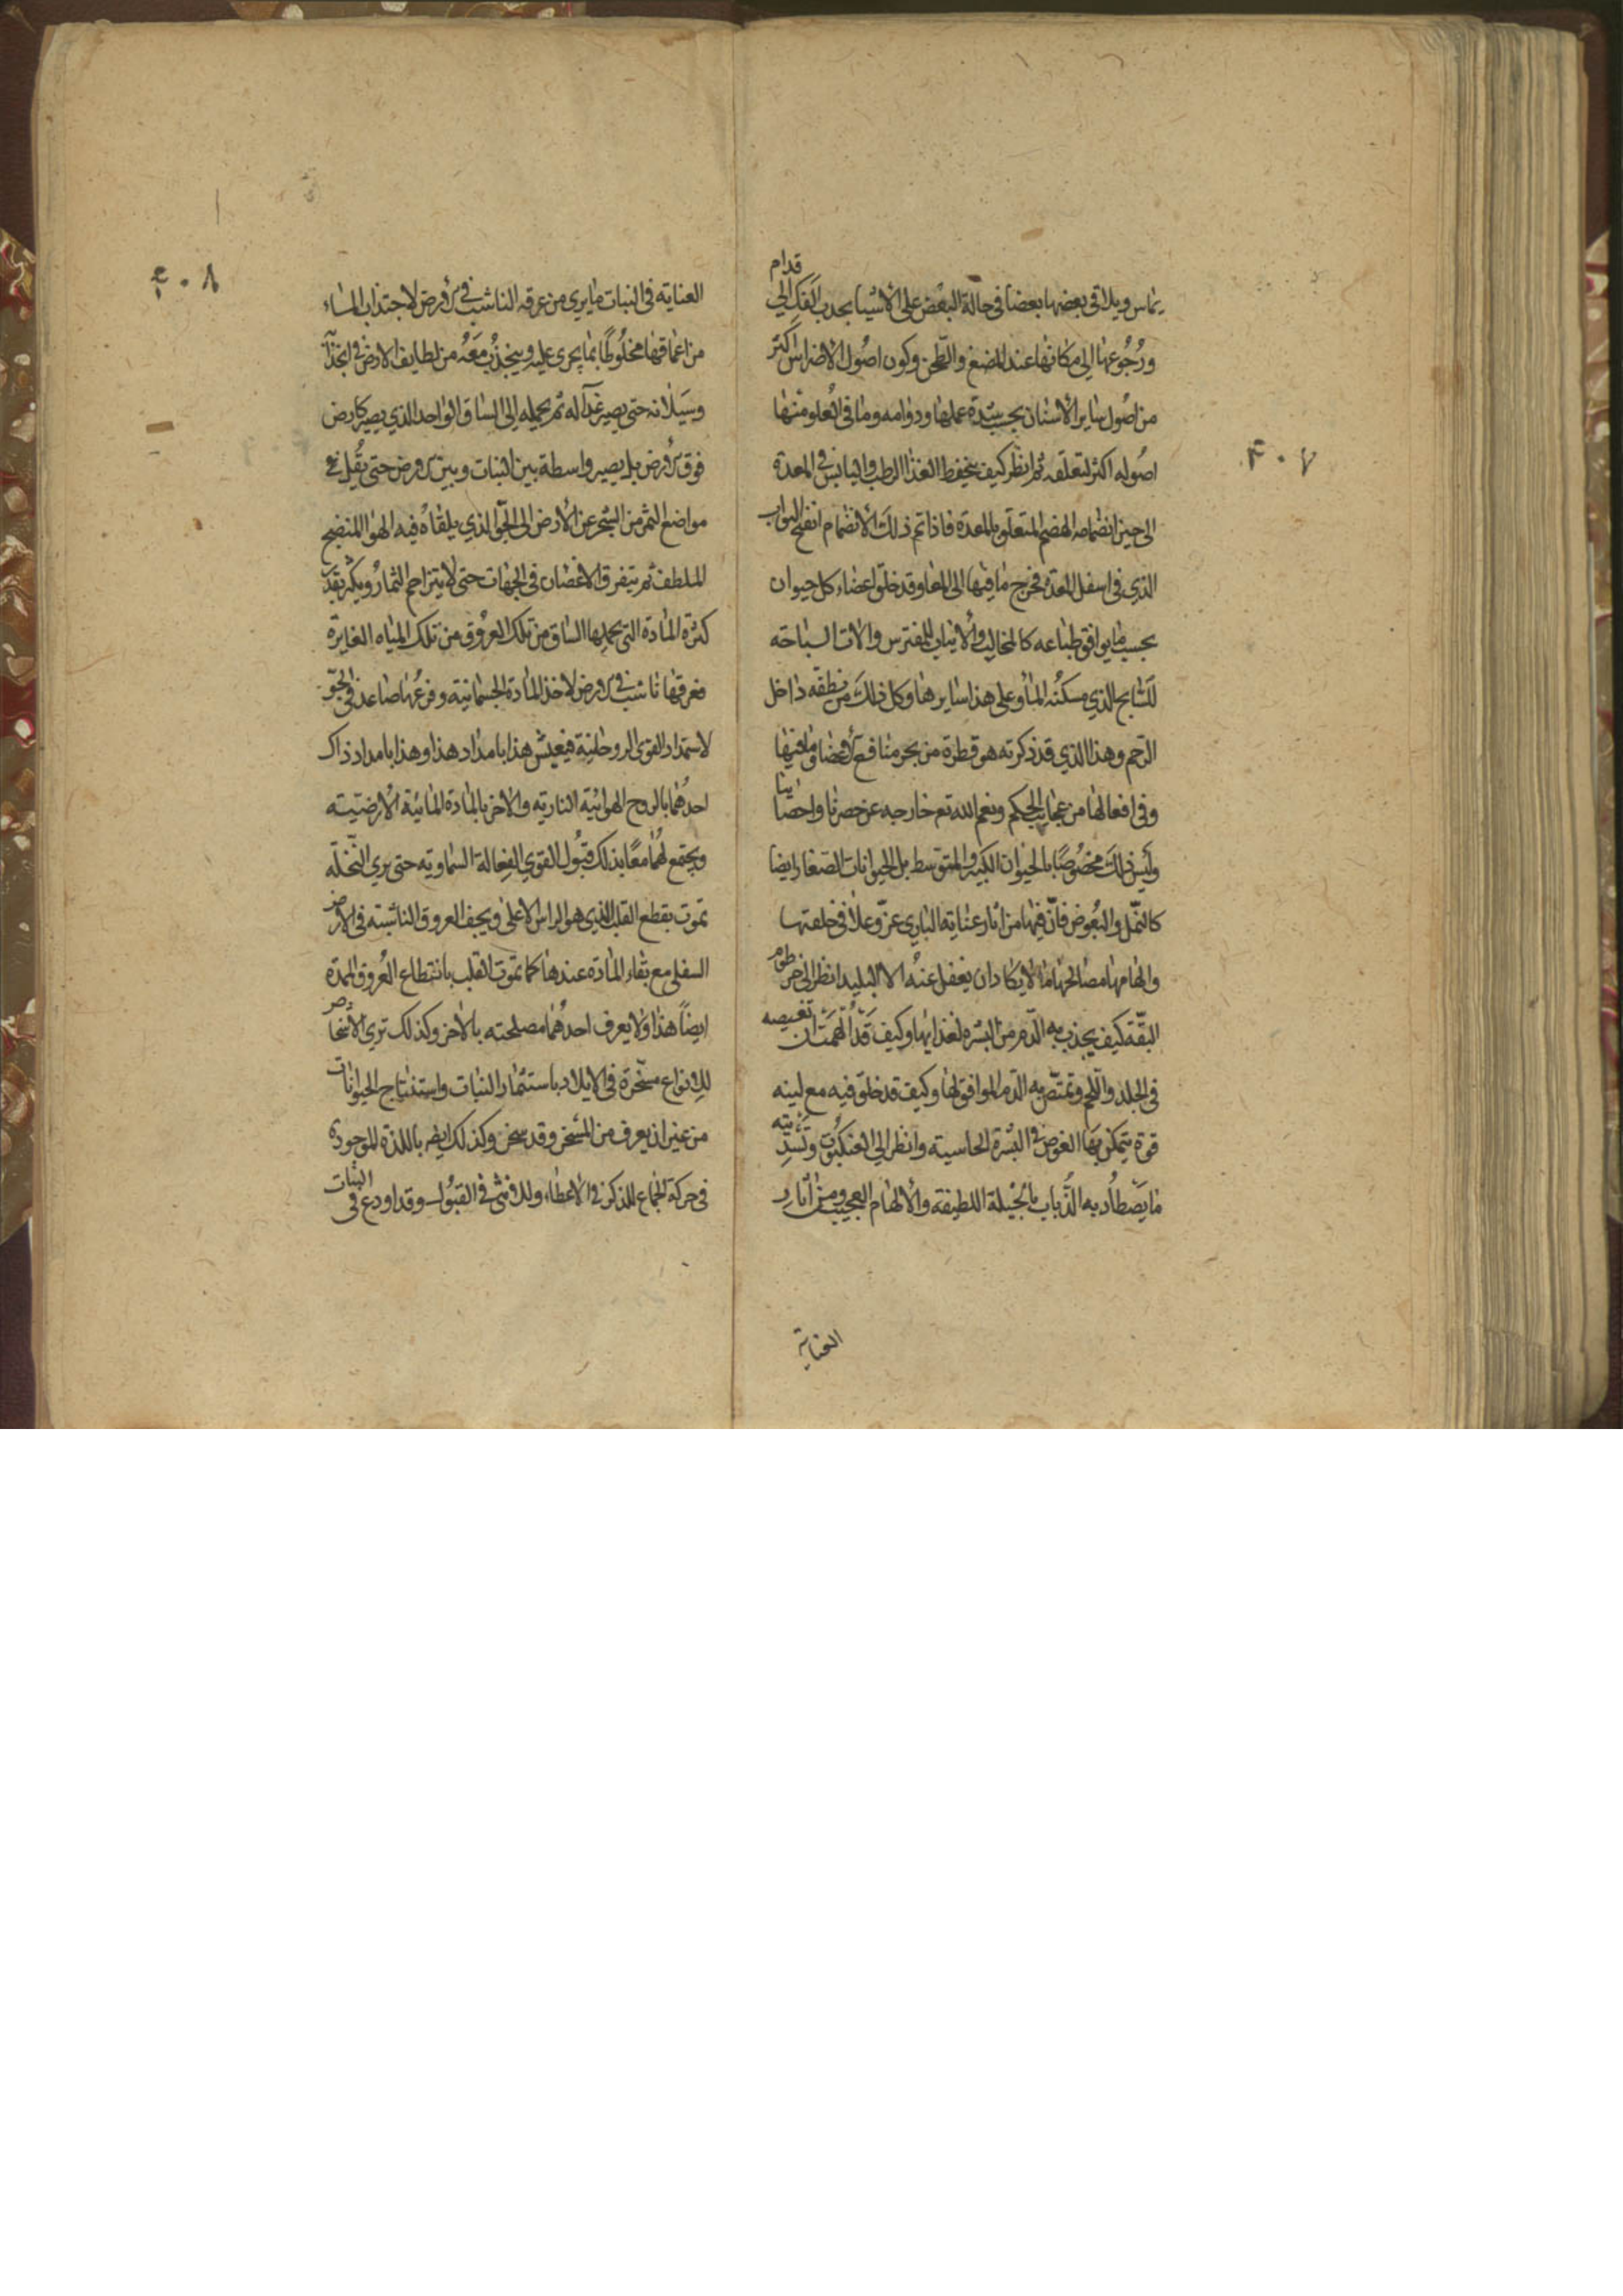 يماس ويلاقي بعضها بعضا في حالة البعض على الأشيا بجذب الفك الي قدام
ورجوعها الى مكانها عند المضغ والطحن وكون اصول الاضراس اكثر
من اصول ساير الأسنان بحسب شدة عملها ودوامه وما في العلو منها
اصوله اكثر لتعلقه ثم انظر كيف ينحفظ الغذا الرطب واليابس في المعدة
الى حين انضمامه الهضم المتعلق بالمعدة فاذا تم ذلك الانضمام انفتح البواب
الذي في اسفل المعدة فخرج ما فيها الى المعا وقد خلق اعضاء كل حيوان
بحسب ما يوافق طباعه كالمخاليب والأنياب للمفترس والات السباحه
للسابح الذي مسكنه الماء وعلى هذا سايرها وكل ذلك من نطفه داخل
الرحم وهذا الذي قد ذكرته هو قطرة من بحر منافع الأعضا وما فيها
وفي افعالها من عجايب الحكم ونعم الله تع خارجه عن حصرنا واحصاينا
وليس ذلك مخصوصا بالحيوان الكبير والمتوسط بل الحيوانات الصغار ايضا
كالنمل والبعوض فان فيها من اثار عناية الباري عز وعلا في خلقتها
والهامها مصالحها ما لا يكاد ان يغفل عنه الا البليد انظر الى خرطوم
البقة كيف يجذب به الدم من البشره لغذايها وكيف قد الهمت ان تغيصه
في الجلد واللحم وتمتص به الدم الموافق لها وكيف قد خلق فيه مع لينه
قوة يتمكن بها الغوص في البشرة الحاسية وانظر الي العنكبوت وتسديته
ما يصطاد به الذباب بالحيلة اللطيفة والألهام العجيب ومن اثار
العناية
العنايه في النبات ما يري من عرقه الناشب في الأرض لاجتذاب الماء
من اعماقها مخلوطا بما يجري عليه وينجذب معه من لطايف الارض في انجذابه
وسيلانه حتى يصير غذآء له ثم يحمله إلى الساق الواحد الذي يصير كارض
فوق الأرض بل يصير واسطة بين النبات وبين الأرض حتى يقل
مواضع الثمر من الشجر عن الأرض الى الجو الذي يلقاه فيه الهوا المنضج
الملطف ثم يتفرق الاغصان في الجهات حتى لا يتزاحم الثمار ويكثر بقدر
كثرة المادة التي يحملها الساق من تلك العروق من تلك المياه الغايرة
فعرقها ناشب في الأرض لاخذ المادة الجسمانية وفرعها صاعد في الجو
لاستمداد القوى الروحانية فيعيش هذا بامداد هذا وهذا بامداد ذاك
احدهما بالروح الهوائية الناريه والاخر بالمادة المائية الأرضيته
ويجتمع لهما معا بذلك قبول القوي الفعالة السماويه حتى يري النخله
تموت بقطع القلب الذي هو الراس الاعلى ويجف العروق الناشبه في الارض
السفلى مع بقاء المادة عندها كما تموت القلب بانقطاع العروق الممدة
ايضا هذا ولا يعرف احدهما مصلحته بالاخر وكذلك تري الاشخاص
للانواع مسخرة في الايلاد باستثمار النبات واستنتاج الحيوانات
من غير ان يعرف من المسخر وقد سخر وكذلك ايضا باللذة الموجودة
في حركة الجماع للذكر في الأعطاء وللانثى في القبول وقد اودع في النبات